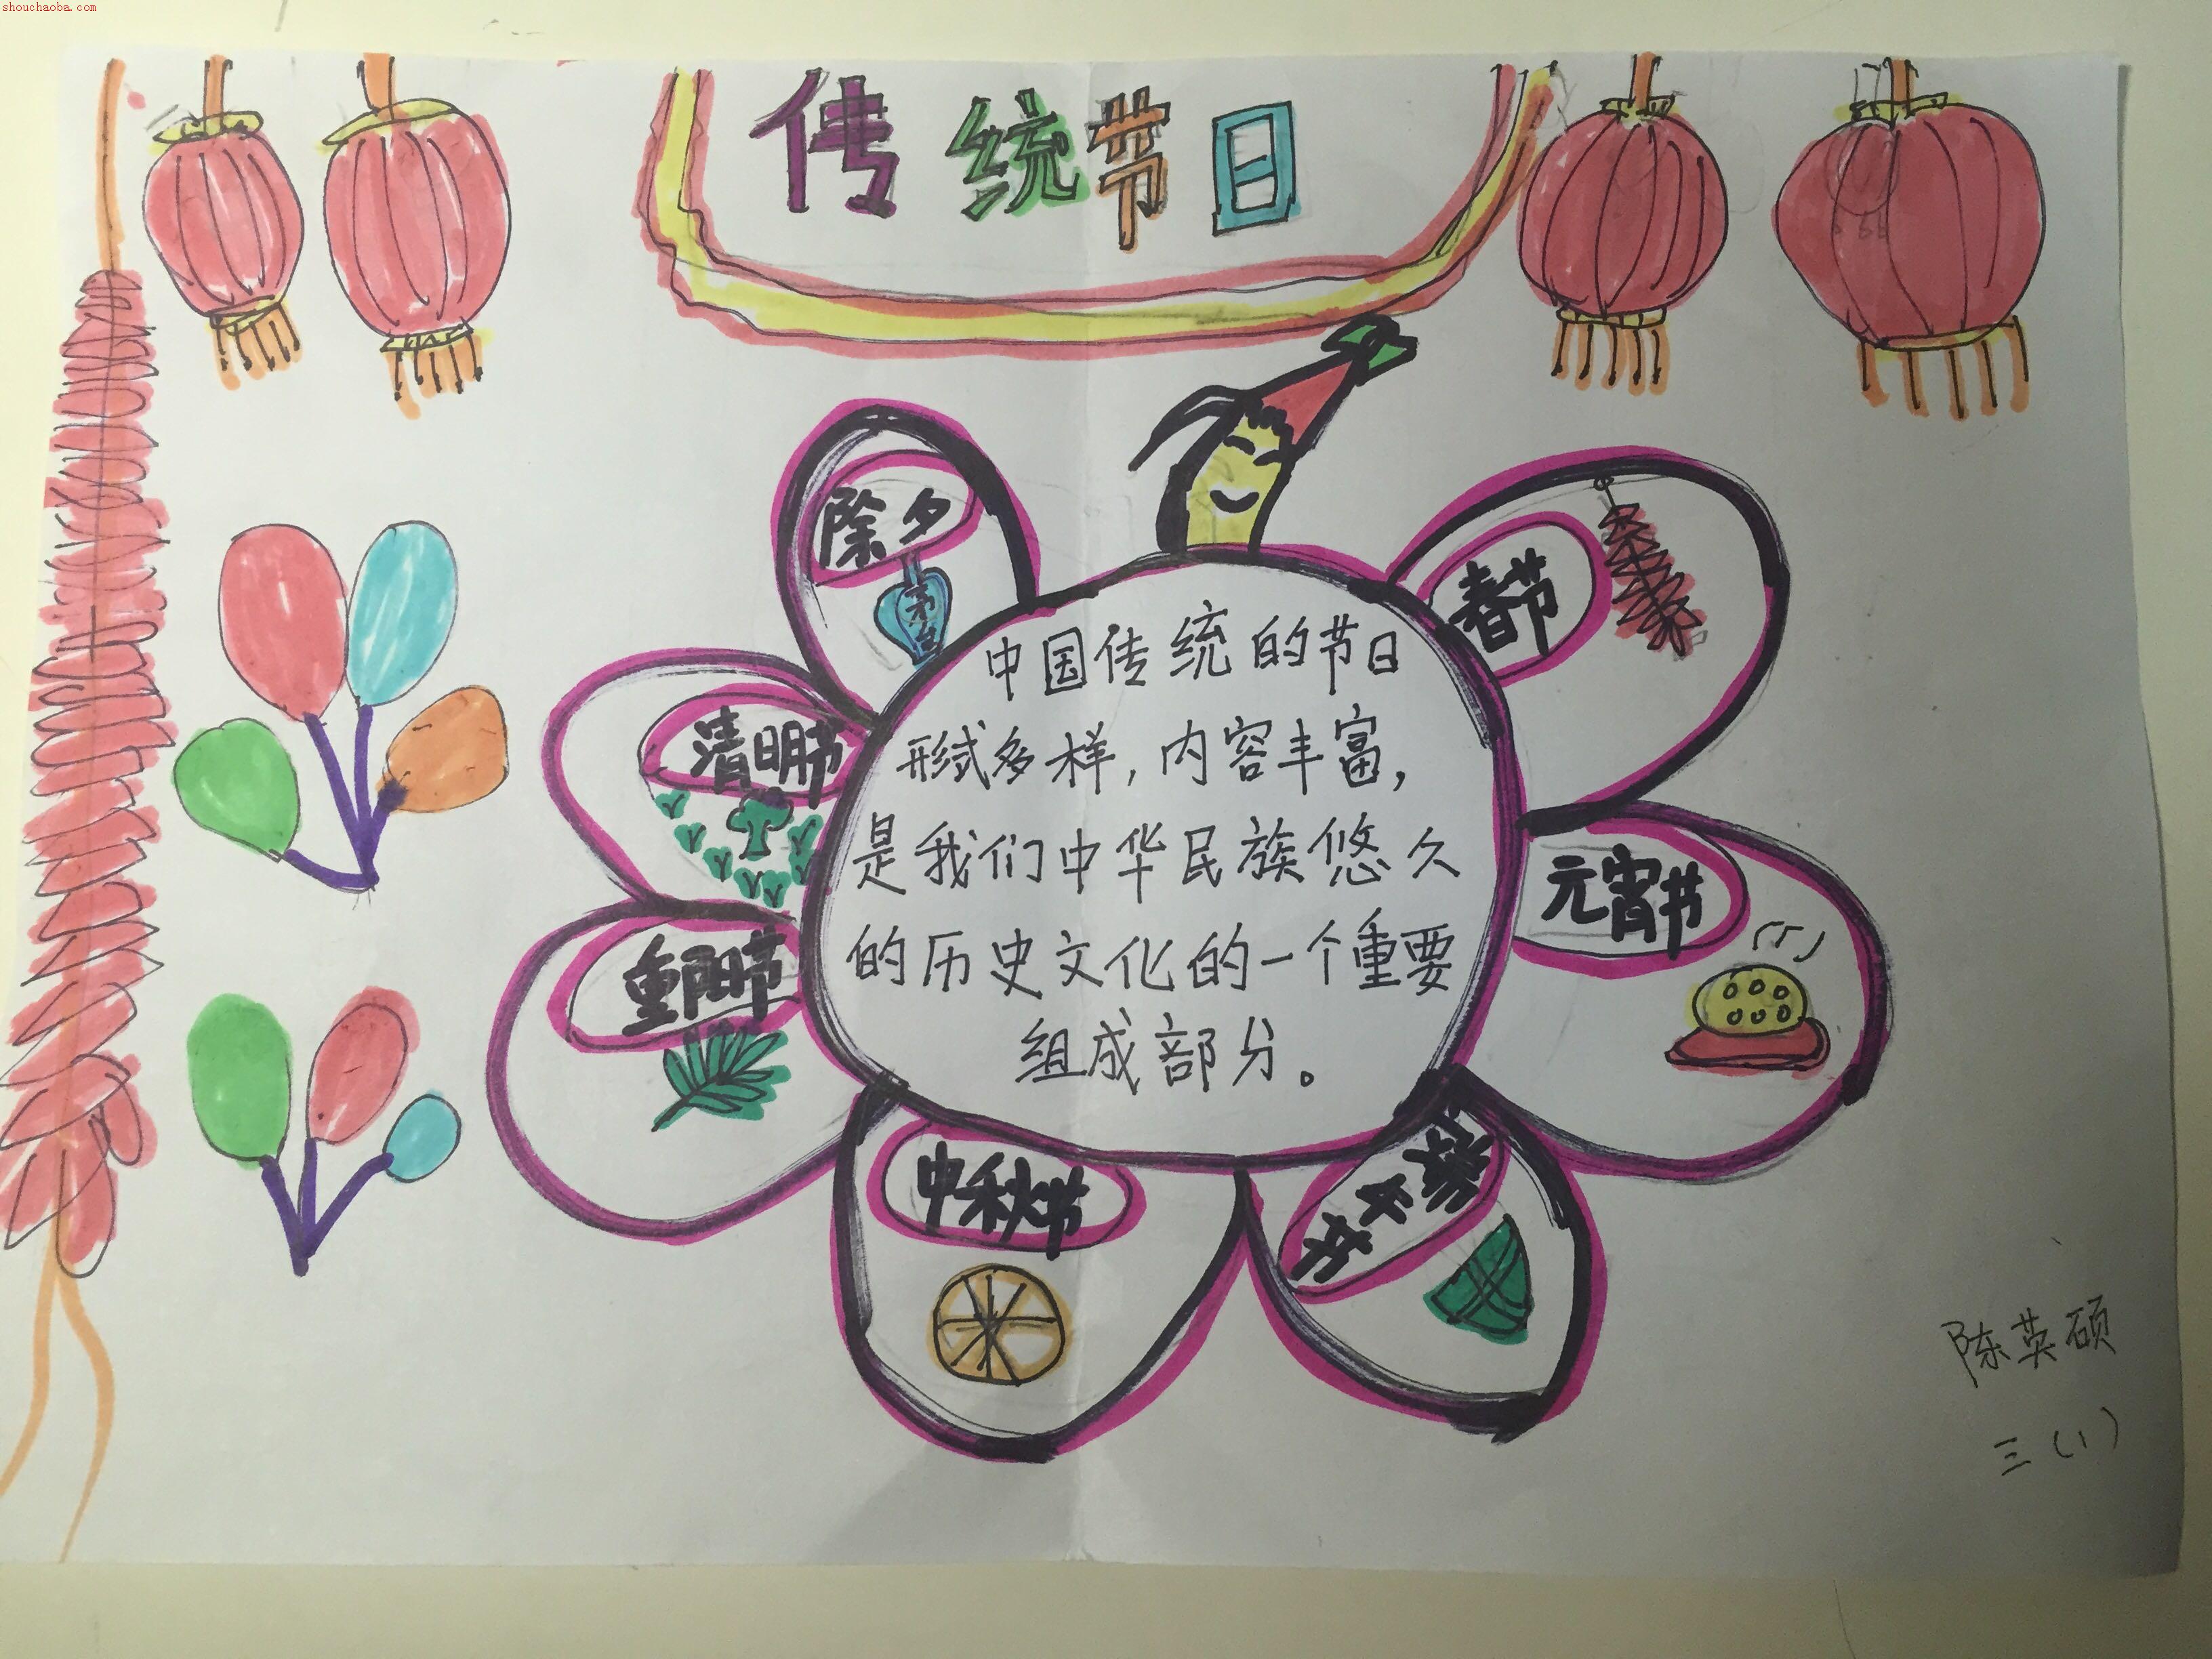 shouchaoba.com
传统节日
除夕
茅台
春节
清明节
元宵节
重阳节
中秋节
端午节
中国传统的节日
形式多样，内容丰富，
是我们中华民族悠久
的历史文化的一个重要
组成部分。
陈英硕
三（1）